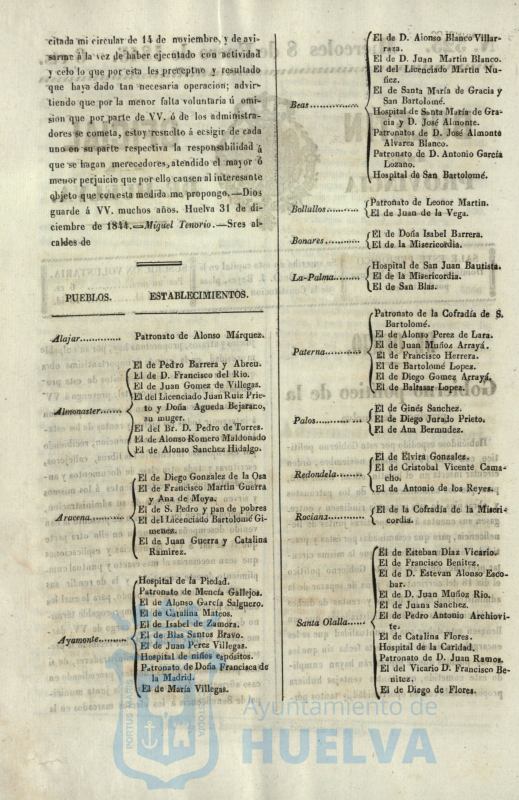 citada mi circular de 14 de noviembre, y de avi-
sarme á la vez de haber ejecutado con actividad
y celo lo que por esta les preceptuo y resultado
que haya dado tan necesaria operacion; advir-
tiendo que por la menor falta voluntaria ú omi-
sion que por parte de VV. ó de los administra-
dores se cometa, estoy resuelto á ecsigir de cada
uno en su parte respectiva la responsabilidad á
que se hagan merecedores, atendido el mayor ó
menor perjuicio que por ello causen al interesante
objeto que con esta medida me propongo.—Dios
guarde á VV. muchos años. Huelva 31 de di-
ciembre de 1844.—Miguel Tenorio.—Sres al-
caldes de
PUEBLOS. ESTABLECIMIENTOS.
Alajar............ Patronato de Alonso Márquez.
El de Pedro Barrera y Abreu.
El de D. Francisco del Rio.
El de Juan Gomez de Villegas.
El del Licenciado Juan Ruiz Prie-
Almonaster........ to y Doña Agueda Bejarano,
su muger.
El del Br. D. Pedro de Torres.
El de Alonso Romero Maldonado
El de Alonso Sanchez Hidalgo.
El de Diego Gonzalez de la Osa
El de Francisco Martin Guerra
y Ana de Moya.
El de S. Pedro y pan de pobres
Aracena.......... El del Licenciado Bartolomé Gi-
menez.
El de Juan Guerra y Catalina
Ramirez.
Hospital de la Piedad.
Patronato de Mencía Gallejos.
El de Alonso García Salguero.
El de Catalina Mateos.
El de Isabel de Zamora.
El de Blas Santos Bravo.
Ayamonte......... El de Juan Perez Villegas.
Hospital de niños espósitos.
Patronato de Doña Francisca de
la Madrid.
El de María Villegas.
El de D. Alonso Blanco Villar-
raza.
El de D. Juan Martin Blanco.
El del Licenciado Martin Nu-
ñez.
El de Santa María de Gracia y
San Bartolomé.
Beas.............. Hospital de Santa María de Gra-
cia y D. José Almonte.
Patronatos de D. José Almonte
Alvarez Blanco.
Patronato de D. Antonio García
Lozano.
Hospital de San Bartolomé.
Bollullos.......... Patronato de Leonor Martin.
El de Juan de la Vega.
Bonares........... El de Doña Isabel Barrera.
El de la Misericordia.
Hospital de San Juan Bautista.
La-Palma......... El de la Misericordia.
El de San Blas.
Patronato de la Cofradía de S.
Bartolomé.
El de Alonso Perez de Lara.
El de Juan Muñoz Arrayá.
Paterna........... El de Francisco Herrera.
El de Bartolomé Lopez.
El de Diego Gomez Arrayá.
El de Baltasar Lopez.
El de Ginés Sanchez.
Palos............. El de Diego Jurado Prieto.
El de Ana Bermudez.
El de Elvira Gonzalez.
Redondela........ El de Cristobal Vicente Cama-
cho.
El de Antonio de los Reyes.
Rociana.......... El de la Cofradía de la Miseri-
cordia.
El de Esteban Diaz Vicario.
El de Francisco Benitez.
El de D. Estevan Alonso Esco-
bar.
El de D. Juan Muñoz Rio.
El de Juana Sanchez.
El de Pedro Antonio Archiovi-
Santa Olalla...... te.
El de Catalina Flores.
Hospital de la Caridad.
Patronato de D. Juan Ramos.
El del Vicario D. Francisco Be-
nitez.
El de Diego de Flores.
Ayuntamiento de
HUELVA